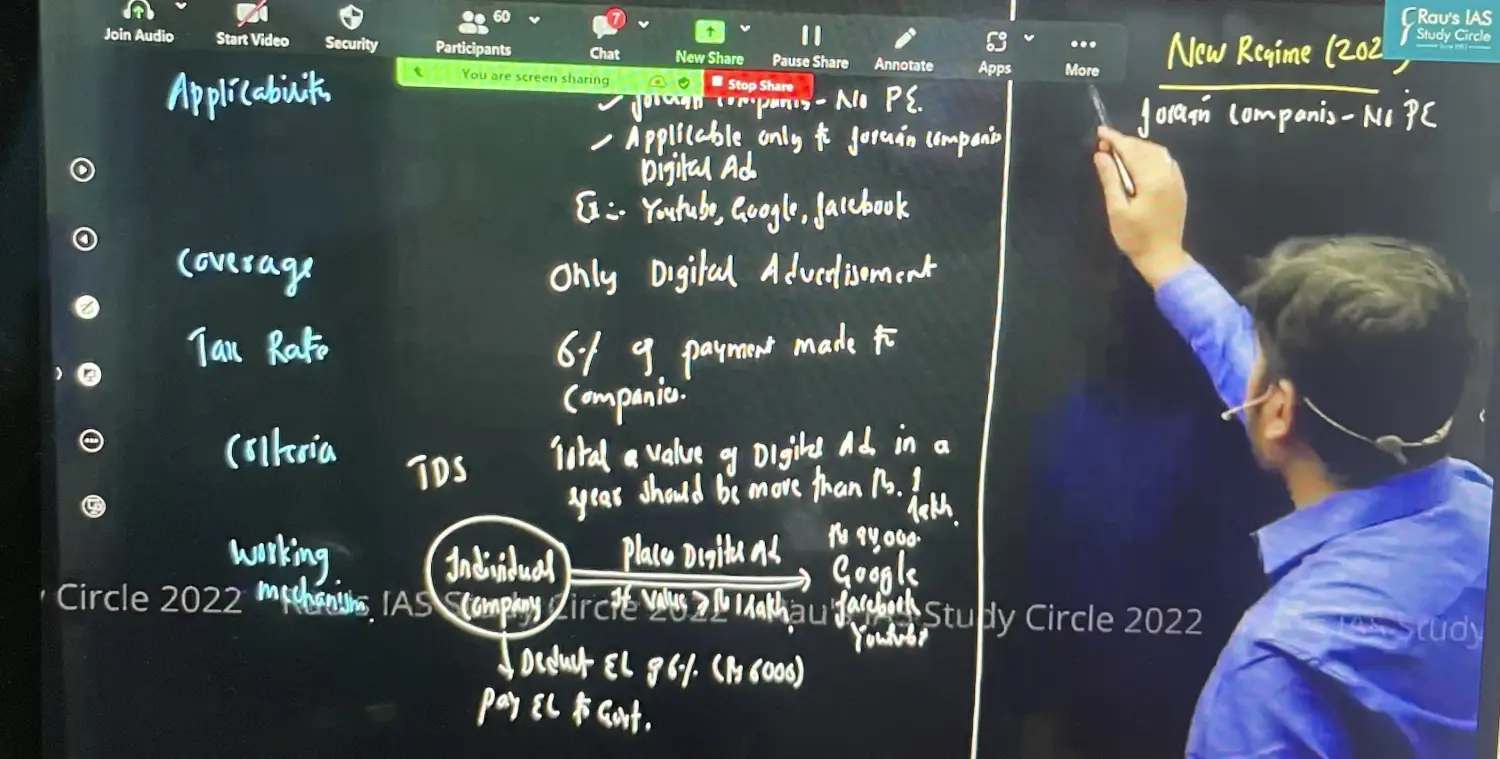 Join Audio
Start Video
Security
60
Participants
7
Chat
New Share
Pause Share
Annotate
Apps
More
You are screen sharing
Stop Share
Rau's IAS
Study Circle
New Regime (202
foreign companies - No PE
Applicability
foreign companies - No PE.
Applicable only to foreign companies
Digital Ad.
Ex:- Youtube, Google, facebook
Coverage
Only Digital Advertisement
Tax Rate
6% of payment made to
Companies.
Criteria
TDS
Total a value of Digital Ad in a
year should be more than Rs. 1
lakh.
Working
mechanism.
Individual
Company
Place Digital Ad
If value > Rs 1 lakh.
Rs 94,000.
Google
facebook
Youtube
Deduct EL of 6% (Rs 6000)
Pay EL to Govt.
Circle 2022
Rau's IAS Study Circle 2022
Rau's IAS Study Circle 2022
IAS Study